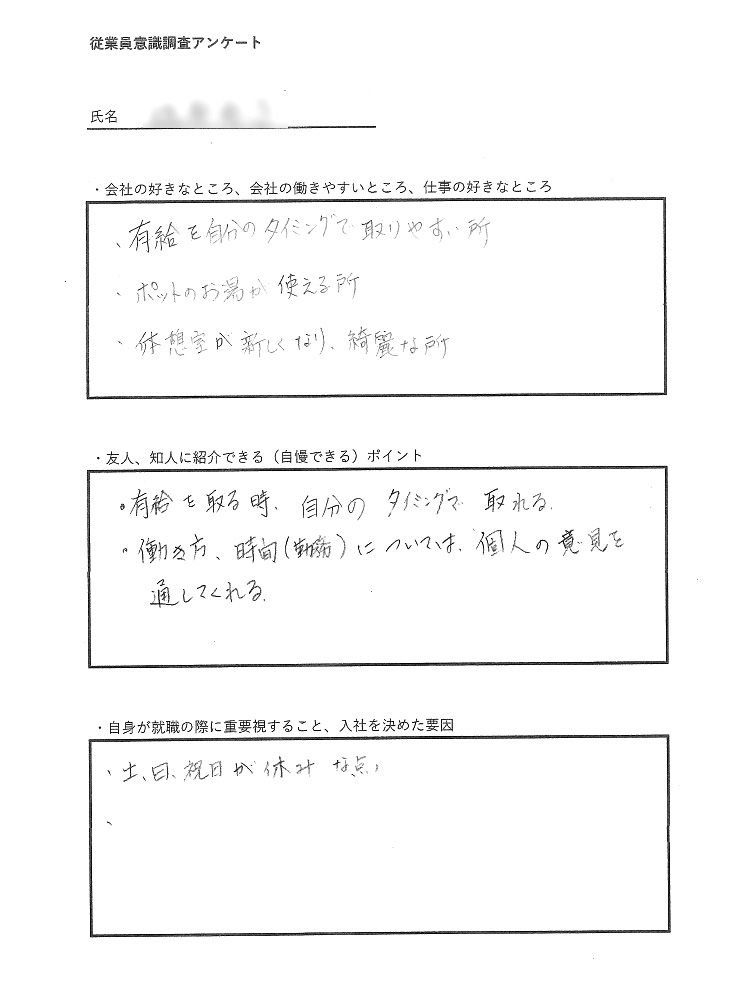 従業員意識調査アンケート
氏名
・会社の好きなところ、会社の働きやすいところ、仕事の好きなところ
、有給を自分のタイミングで取りやすい所
・ポットのお湯が使える所
・休憩室が新しくなり、綺麗な所
・友人、知人に紹介できる（自慢できる）ポイント
・有給を取る時、自分のタイミングで取れる。
・働き方、時間(勤務)については、個人の意見を
通してくれる。
・自身が就職の際に重要視すること、入社を決めた要因
・土、日、祝日が休みな点、
、